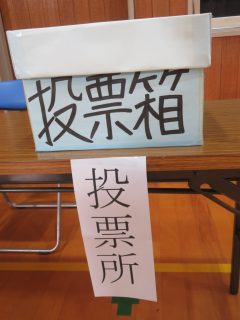 投票箱
投票所